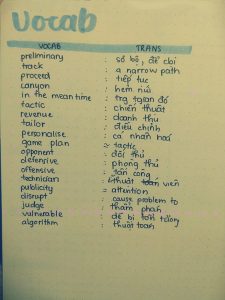 vocab
VOCAB TRANS
preliminary : sơ bộ, để cbi
track : a narrow path
proceed : tiếp tục
canyon : hẻm núi
in the mean time : trg
tactic : chiến thuật
revenue : doanh thu
tailor : điều chỉnh
personalise : cá nhân hoá
game plan : tactic
opponent : đối thủ
defensive : phòng thủ
offensive : tấn công
technician : thuật viên
publicity : attention
disrupt : cause problem to
judge : thẩm phán
vulnerable : dễ bị tổn thương
algorithm : thuật toán